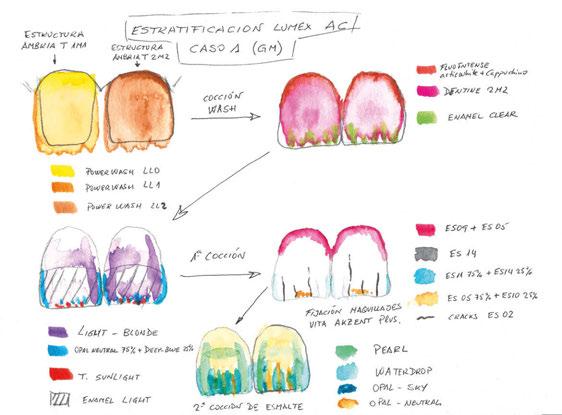 ESTRATIFICACION LUMEX AC/
CASO 1 (GM)
ESTRUCTURA
AMBRIA T 1M1
ESTRUCTURA
AMBRIA T 2M2
COCCIÓN
WASH
FLUOINTENSE
articwhite + Cappuchino
DENTINE 2M2
ENAMEL CLEAR
POWERWASH LL0
POWERWASH LL1
POWER WASH LL2
1ª COCCIÓN
ES09 + ES 05
ES 14
ES11 75% + ES14 25%
ES 05 75% + ES10 25%
CRACKS ES 02
FIJACIÓN MAQUILLAJES
VITA AKZENT PLUS.
LIGHT - BLONDE
OPAL NEUTRAL 75% + DEEP-BLUE 25%
T. SUNLIGHT
ENAMEL LIGHT
PEARL
WATERDROP
OPAL - SKY
OPAL - NEUTRAL
2ª COCCION DE ESMALTE